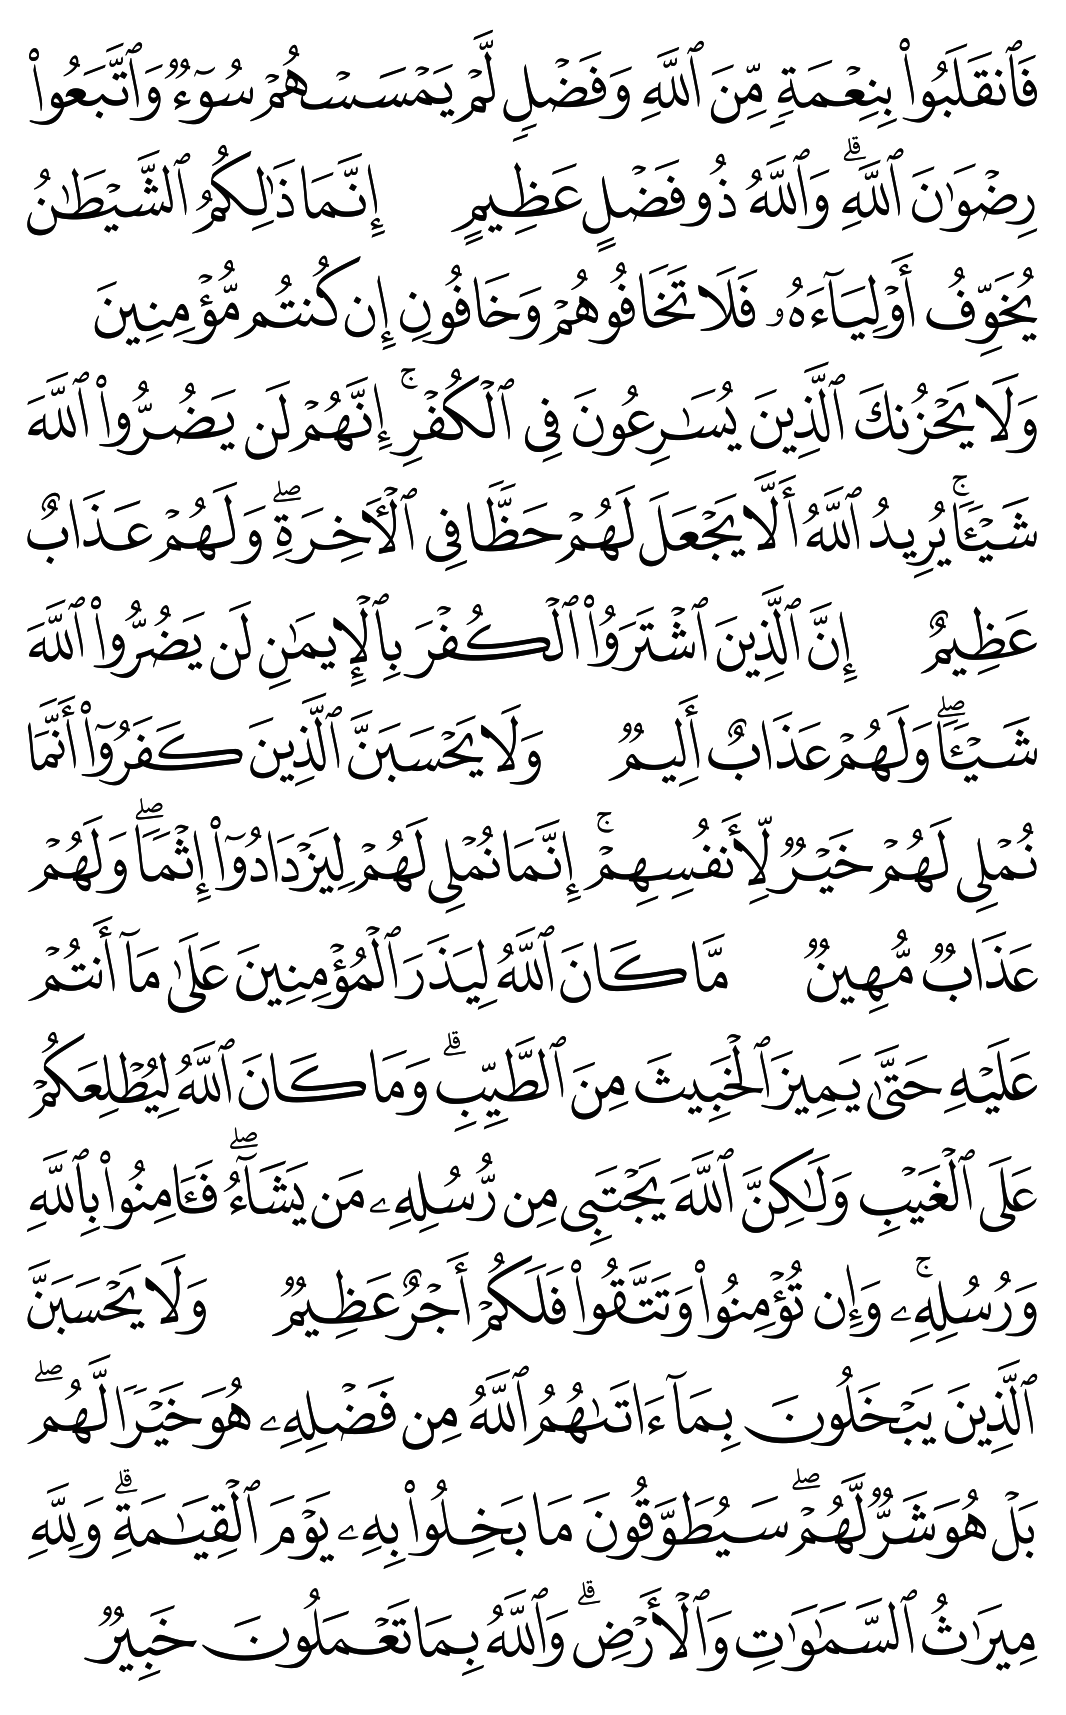 فَٱنقَلَبُوا۟ بِنِعْمَةٍ مِّنَ ٱللَّهِ وَفَضْلٍ لَّمْ يَمْسَسْهُمْ سُوٓءٌ وَٱتَّبَعُوا۟
رِضْوَٰنَ ٱللَّهِ ۗ وَٱللَّهُ ذُو فَضْلٍ عَظِيمٍ إِنَّمَا ذَٰلِكُمُ ٱلشَّيْطَٰنُ
يُخَوِّفُ أَوْلِيَآءَهُۥ فَلَا تَخَافُوهُمْ وَخَافُونِ إِن كُنتُم مُّؤْمِنِينَ
وَلَا يَحْزُنكَ ٱلَّذِينَ يُسَٰرِعُونَ فِى ٱلْكُفْرِ ۚ إِنَّهُمْ لَن يَضُرُّوا۟ ٱللَّهَ
شَيْـًٔا ۚ يُرِيدُ ٱللَّهُ أَلَّا يَجْعَلَ لَهُمْ حَظًّا فِى ٱلْـَٔاخِرَةِ ۖ وَلَهُمْ عَذَابٌ
عَظِيمٌ إِنَّ ٱلَّذِينَ ٱشْتَرَوُا۟ ٱلْكُفْرَ بِٱلْإِيمَٰنِ لَن يَضُرُّوا۟ ٱللَّهَ
شَيْـًٔا ۖ وَلَهُمْ عَذَابٌ أَلِيمٌ وَلَا يَحْسَبَنَّ ٱلَّذِينَ كَفَرُوٓا۟ أَنَّمَا
نُمْلِى لَهُمْ خَيْرٌ لِّأَنفُسِهِمْ ۚ إِنَّمَا نُمْلِى لَهُمْ لِيَزْدَادُوٓا۟ إِثْمًا ۖ وَلَهُمْ
عَذَابٌ مُّهِينٌ مَّا كَانَ ٱللَّهُ لِيَذَرَ ٱلْمُؤْمِنِينَ عَلَىٰ مَآ أَنتُمْ
عَلَيْهِ حَتَّىٰ يَمِيزَ ٱلْخَبِيثَ مِنَ ٱلطَّيِّبِ ۗ وَمَا كَانَ ٱللَّهُ لِيُطْلِعَكُمْ
عَلَى ٱلْغَيْبِ وَلَٰكِنَّ ٱللَّهَ يَجْتَبِى مِن رُّسُلِهِۦ مَن يَشَآءُ ۖ فَـَٔامِنُوا۟ بِٱللَّهِ
وَرُسُلِهِۦ ۚ وَإِن تُؤْمِنُوا۟ وَتَتَّقُوا۟ فَلَكُمْ أَجْرٌ عَظِيمٌ وَلَا يَحْسَبَنَّ
ٱلَّذِينَ يَبْخَلُونَ بِمَآ ءَاتَىٰهُمُ ٱللَّهُ مِن فَضْلِهِۦ هُوَ خَيْرًا لَّهُم ۖ
بَلْ هُوَ شَرٌّ لَّهُمْ ۖ سَيُطَوَّقُونَ مَا بَخِلُوا۟ بِهِۦ يَوْمَ ٱلْقِيَٰمَةِ ۗ وَلِلَّهِ
مِيرَٰثُ ٱلسَّمَٰوَٰتِ وَٱلْأَرْضِ ۗ وَٱللَّهُ بِمَا تَعْمَلُونَ خَبِيرٌ